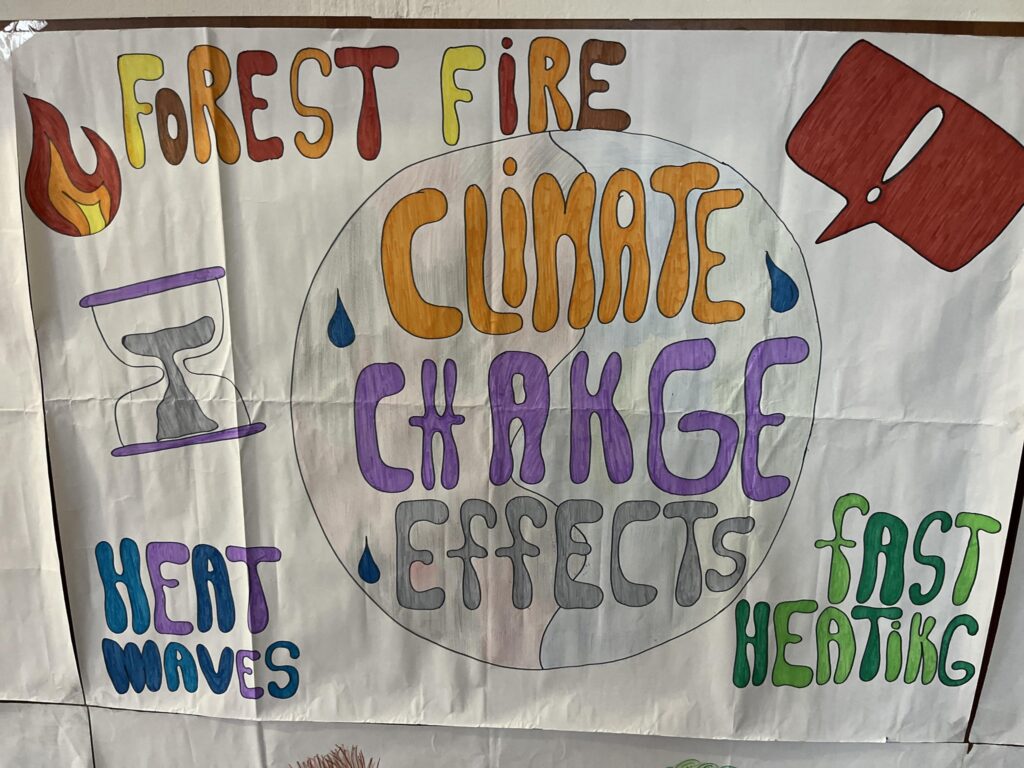 FOREST FIRE
!
CLIMATE
CHANGE
EFFECTS
HEAT
WAVES
fAST
HEATiNG